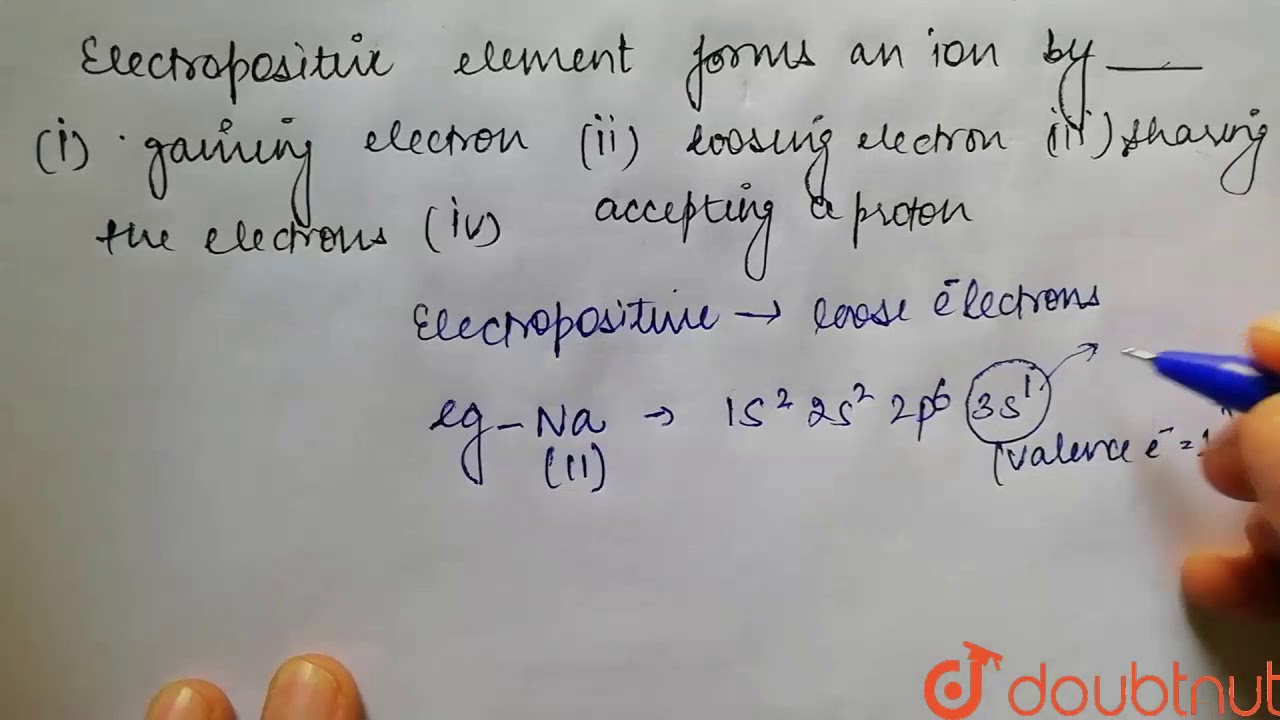 Electropositive element forms an ion by ___
(i) gaining electron (ii) loosing electron (iii) sharing
the electrons (iv) accepting a proton
Electropositive → loose electrons
eg - Na → 1s² 2s² 2p⁶ 3s¹
(11) (valence e⁻ = 1
doubtnut